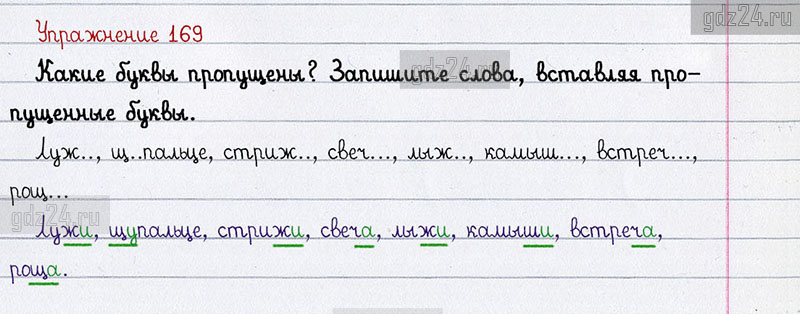 gdz24.ru
Упражнение 169
Какие буквы пропущены? Запишите слова, вставляя про-
gdz24.ru
пущенные буквы.
Луж.., щ..пальце, стриж.., свеч..., лыж.., камыш..., встреч...,
рощ...
gdz24.ru
Лужи, щупальце, стрижи, свеча, лыжи, камыши, встреча,
роща.